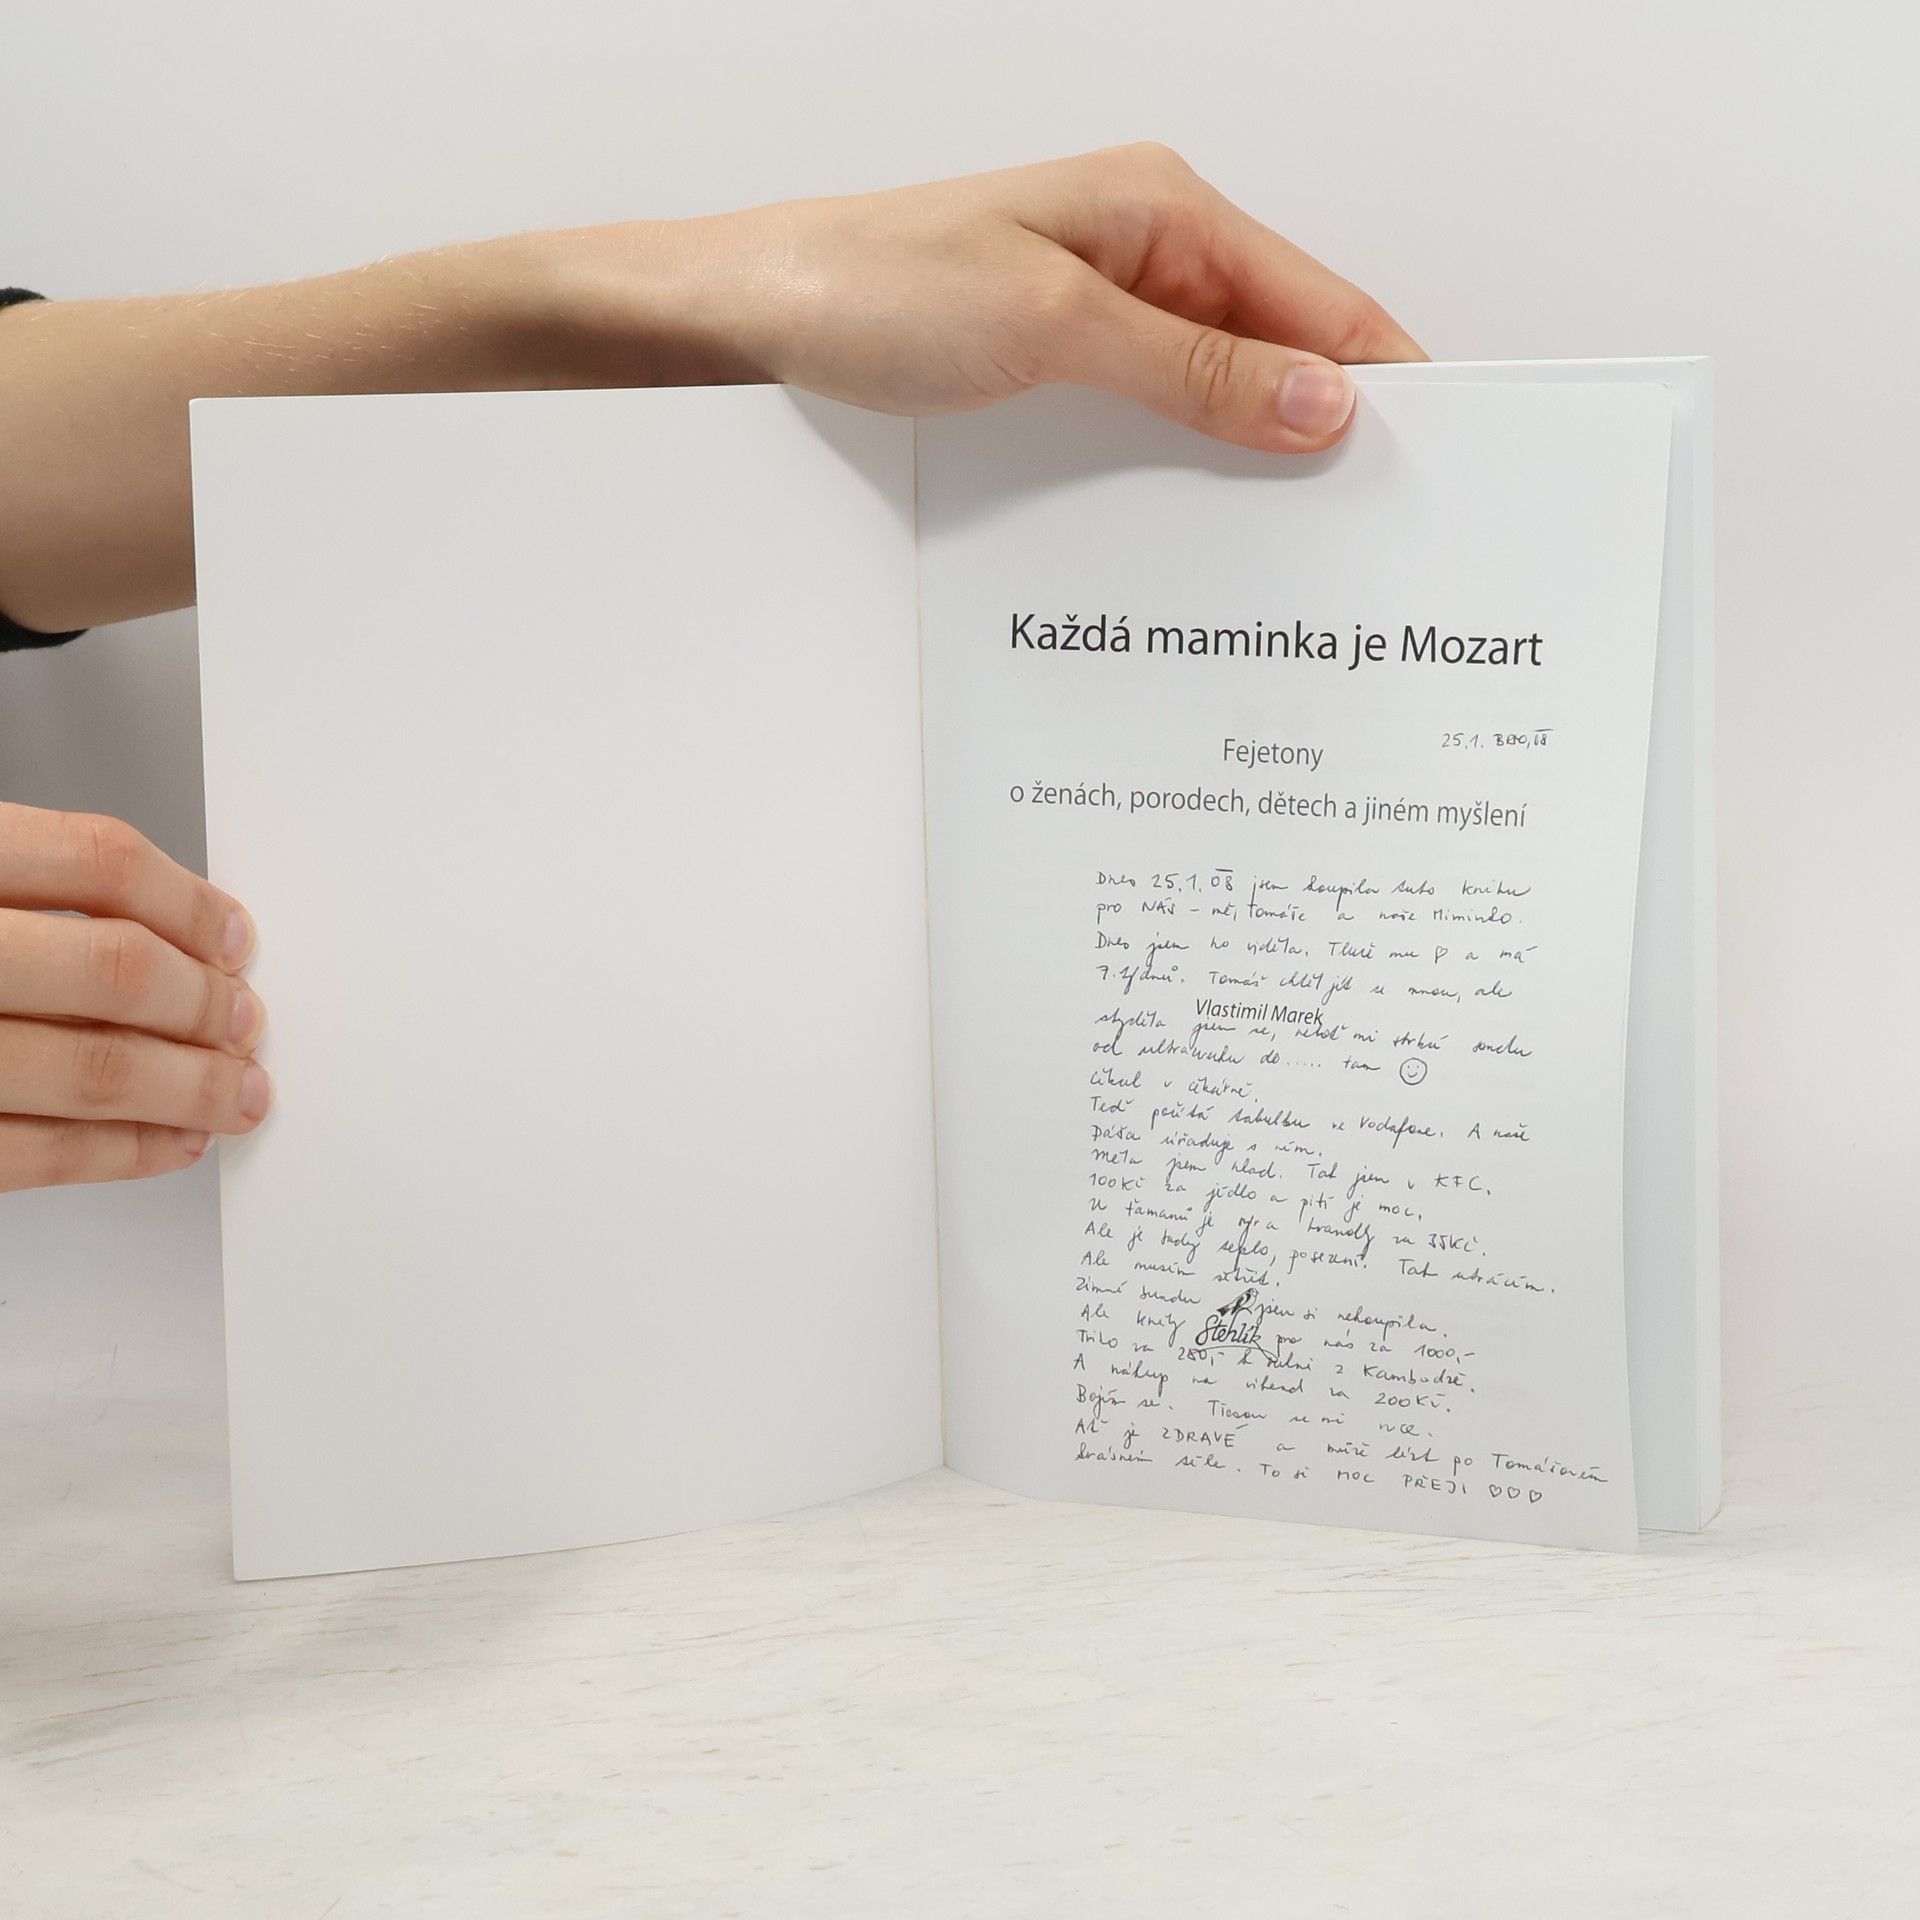 Každá maminka je Mozart
25.1.
Fejetony
o ženách, porodech, dětech a jiném myšlení
Dnes 25.1.08 jsem koupila tuto knihu
pro NÁS – mě, Tomáše a naše Miminko.
Dnes jsem ho viděla. Tluče mu ♡ a má
7. Tomáš chtěl jít se mnou, ale
Vlastimil Marek
styděla jsem se, neboť mi strká sondu
od ultrazvuku do ..... tam ☺
Čekal v čekárně.
Teď počítá tabulku ve Vodafone. A naše
Dáša úřaduje s ním.
Měla jsem hlad. Tak jsem v KFC.
100Kč za jídlo a pití je moc.
U Ťamanů je sýr a hranolky za 35Kč.
Ale je tady teplo, posezení. Tak utrácím.
Ale musím šetřit.
Zimní bundu jsem si nekoupila.
Ale knihy pro nás za 1000,-
Stehlík
Triko za 280,- k sukni z Kambodže.
A nákup na víkend za 200Kč.
Bojím se. Třesou se mi ruce.
Ať je ZDRAVÉ a může lézt po Tomášovém
krásném těle. To si MOC PŘEJI ♡♡♡